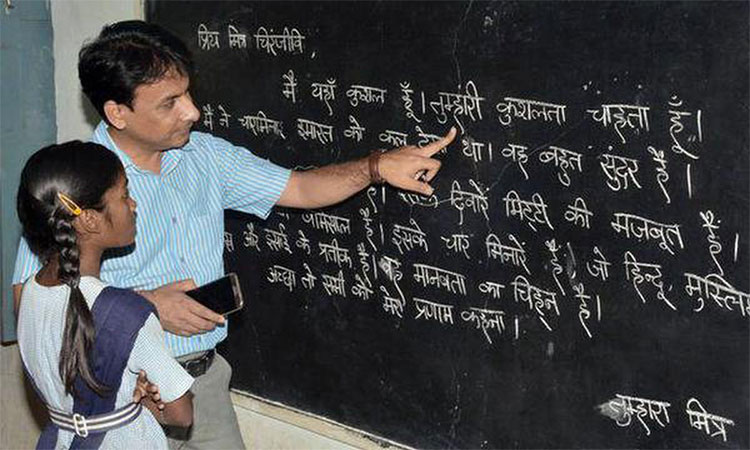 प्रिय मित्र चिरंजीवि,
मैं यहाँ कुशल हूँ। तुम्हारी कुशलता चाहता हूँ।
मैं ने चारमिनार इमारत को कल था। वह बहुत सुंदर है।
दिवारें मिट्टी की मज़बूत हैं।
है। इसके चार मिनारें हैं, जो हिन्दू, मुस्लि
और इसाई के प्रतीक हैं। वह मानवता का चिह्न है।
अच्छा तो सभी को मेरा प्रणाम कहना।
तुम्हारा मित्र